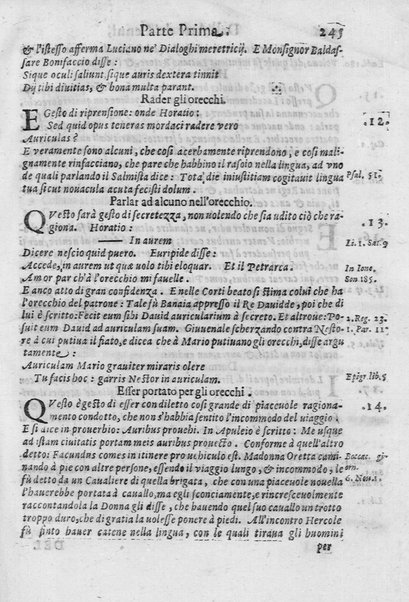 Parte Prima. 245
& l'istesso afferma Luciano ne' Dialoghi meretricij. E Monsignor Baldas-
sare Bonifaccio disse:
Sique oculi saliunt sique auris dextera tinnit
Dij tibi diuitias, & bona multa parant.
Rader gli orecchi.
E Gesto di riprensione: onde Horatio: .12.
Sed quid opus teneras mordaci radere vero
Auriculas?
E veramente sono alcuni, che così acerbamente riprendono, e così mali-
gnamente rinfacciano, che pare che habbino il rasoio nella lingua, ad vno
de quali parlando il Salmista dice: Tota die iniustitiam cogitauit lingua Psal. 51.
tua sicut nouacula acuta fecisti dolum.
Parlar ad alcuno nell'orecchio.
Qvesto sarà gesto di secretezza, non volendo che sia udito ciò che ra- .13.
giona. Horatio:
In aurem Li. 1. Sat. 9
Dicere nescio quid puero. Euripide disse:
Accede, in aurem ut qua uolo tibi eloquar. Et il Petrarca. In Ione.
Amor par ch'à l'orecchio mi fauelle. Son 185.
E anco atto di gran confidenza. E nelle Corti beato si stima colui che hà
l'orecchio del patrone: Tale fù Banaia appresso il Re Dauidde, poi che di
lui è scritto: Fecit eum sibi Dauid auricularium à secreto. Et altroue: Po- 2. Reg. 23.
suit eum Dauid ad auriculam suam. Giuuenale scherzando contra Nesto- 1. Par. 11
re à cui putiua il fiato, e dicea che à Mario putiuano gli orecchi, disse argu
tamente:
Auriculam Mario grauiter miraris olere
Tu facis hoc: garris Nestor in auriculam. Epigr lib. 3
Esser portato per gli orecchi.
Qvesto è gesto di esser con diletto così grande di piaceuole ragiona- .14.
mento condotto, che non s'habbia sentito l'incommodo del viaggio.
E si dice in prouerbio: Auribus prouehi. In Apuleio è scritto: Me usque
ad istam ciuitatis portam meis auribus prouecto. Conforme à quell'altro
detto: Facundus comes in itinere pro uehiculo est. Madonna Oretta cami- Boccac. gi-
nando à pie con altre persone, essendo il viaggio lungo, & incommodo, le orn.
fù detto da un Caualiere di quella brigata, che con una piaceuole nouella 6. Nou. 1.
l'hauerebbe portata à cauallo, ma egli sconciamente, e rincresceuolmente
raccontandola la Donna gli disse, che hauendo quel suo cauallo un trotto
troppo duro, che di gratia la uolesse ponere à piedi. All'incontro Hercole
fù finto hauer catene nella lingua, con le quali tiraua gli huomini
per